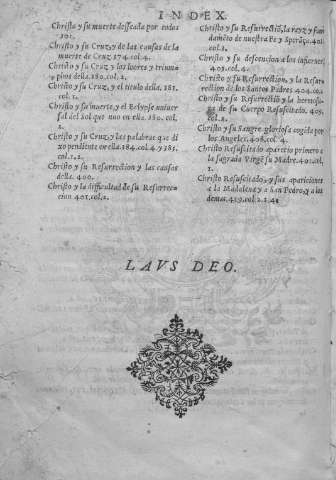 INDEX.
Christo y su muerte desseada por todos
101.
Christo y su Cruz, y de las causas de la
muerte de Cruz 174. col. 4.
Christo y su Cruz, y los loores y triumu
phos della. 180. col. 2.
Christo y su Cruz, y el titulo della. 181.
col. 2.
Christo y su muerte, y el Eclypse uniuer
sal del sol que uuo en ella. 180. col.
2.
Christo y su Cruz, y las palabras que di
xo pendiente en ella. 184. col. 4. y 385.
col. 1. 2.
Christo y su Resurrection y las causas
della. 400.
Christo y la difficultad de su Resurre-
cion 401. col. 2.
Christo y su Resurrectiõ, la rayz y fun
damẽto de nuestra Fe y Sperãça 401.
col. 2.
Christo y su descencion a los infiernos,
403. col. 4.
Christo y su Resurrection, y la Resur
rection de los Santos Padres 404. co.
Christo y su Resurrectiõ y la hermosu
ra de su Cuerpo Resuscitado. 405.
col. 2.
Christo y su Sangre gloriosa cogida por
los Angeles. 406. col. 4.
Christo Resuscitado aparecio primero a
la sagrada Virgẽ su Madre. 401. col.
1.
Christo Resuscitado, y sus apariciones
a la Madalena y a san Pedro, y a los
demas. 419. col. 2. 3. 4.
LAVS DEO.